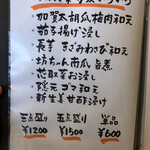 ・加賀太胡瓜梅肉和え
・茄子揚げ浸し
・長芋 きざみわさび和え
・坊ちゃん南瓜 旨煮
・芯取菜お浸し
・隠元 ゴマ和え
・新生姜甘酢漬け
三点盛り 五点盛り 単品
¥1200 ¥1500 ¥600